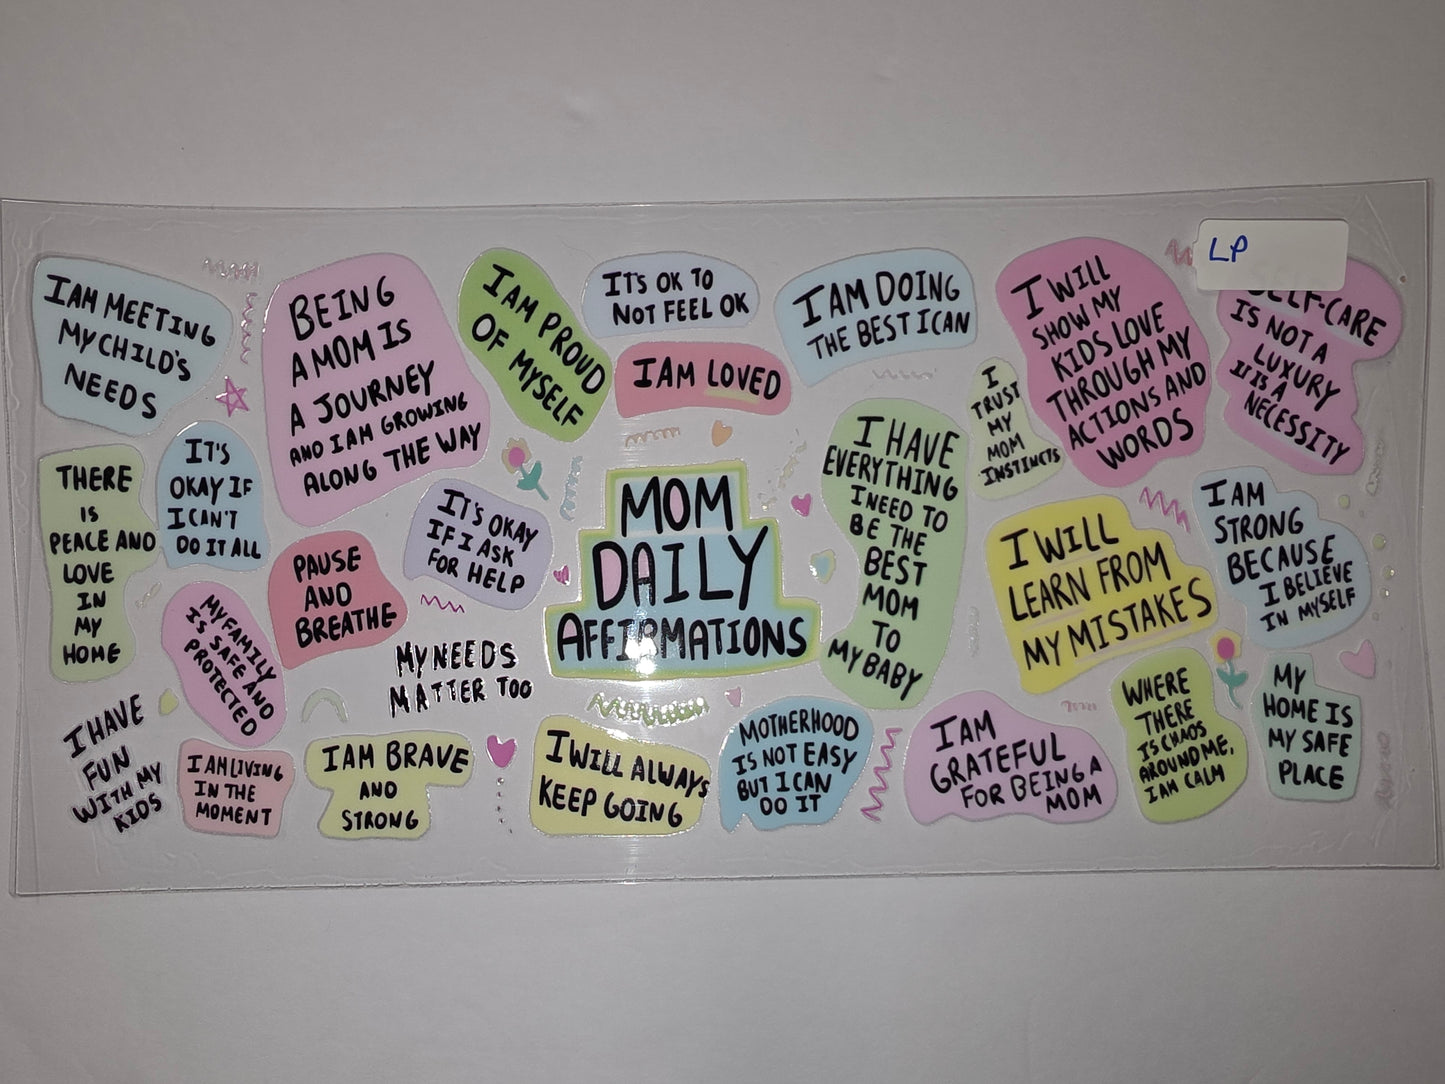 LP
I AM MEETING
MY CHILD'S
NEEDS
BEING
A MOM IS
A JOURNEY
AND I AM GROWING
ALONG THE WAY
I AM PROUD
OF MYSELF
IT'S OK TO
NOT FEEL OK
I AM LOVED
I AM DOING
THE BEST I CAN
I WILL
SHOW MY
KIDS LOVE
THROUGH MY
ACTIONS AND
WORDS
SELF-CARE
IS NOT A
LUXURY
IT IS A
NECESSITY
I
TRUST
MY
MOM
INSTINCTS
THERE
IS
PEACE AND
LOVE
IN
MY
HOME
IT'S
OKAY IF
I CAN'T
DO IT ALL
PAUSE
AND
BREATHE
IT'S OKAY
IF I ASK
FOR HELP
MOM
DAILY
AFFIRMATIONS
I HAVE
EVERYTHING
I NEED TO
BE THE
BEST
MOM
TO
MY BABY
I WILL
LEARN FROM
MY MISTAKES
I AM
STRONG
BECAUSE
I BELIEVE
IN MYSELF
MY FAMILY
IS SAFE AND
PROTECTED
MY NEEDS
MATTER TOO
I HAVE
FUN
WITH MY
KIDS
I AM LIVING
IN THE
MOMENT
I AM BRAVE
AND
STRONG
I WILL ALWAYS
KEEP GOING
MOTHERHOOD
IS NOT EASY
BUT I CAN
DO IT
I AM
GRATEFUL
FOR BEING A
MOM
WHERE
THERE
IS CHAOS
AROUND ME,
I AM CALM
MY
HOME IS
MY SAFE
PLACE